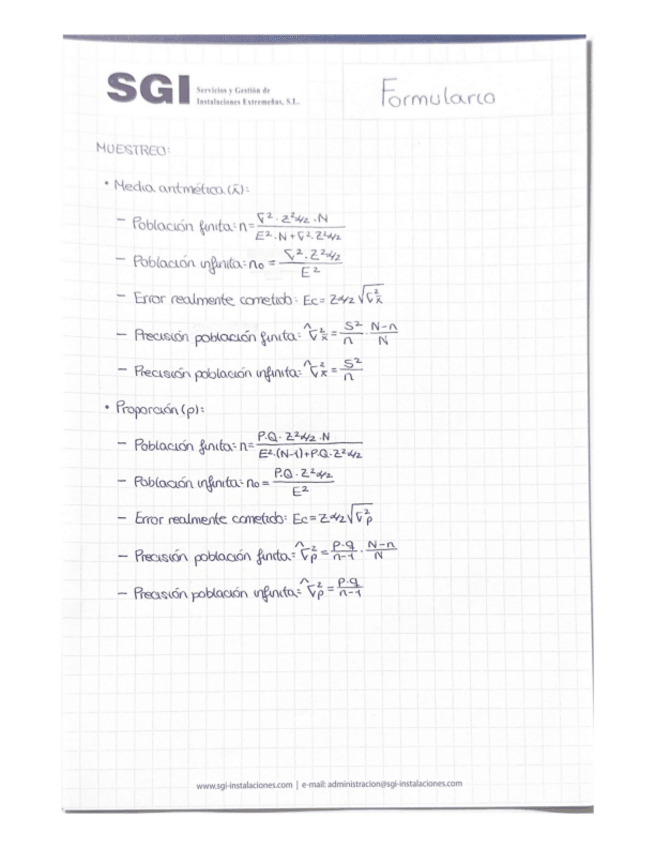 SGI Servicios y Gestión de
Instalaciones Extremeñas, S.L.
Formulario
MUESTREO:
• Media aritmética (x̄):
– Población finita: n = σ²·Z²α/2·N / E²·N+σ²·Z²α/2
– Población infinita: n₀ = σ²·Z²α/2 / E²
– Error realmente cometido: Ec = Zα/2 √σ²x̄
– Precisión población finita: σ̂²x̄ = S²/n · N-n/N
– Precisión población infinita: σ̂²x̄ = S²/n
• Proporción (p):
– Población finita: n = P·Q·Z²α/2·N / E²·(N-1)+P·Q·Z²α/2
– Población infinita: n₀ = P·Q·Z²α/2 / E²
– Error realmente cometido: Ec = Zα/2 √σ²p
– Precisión población finita: σ̂²p = p·q/n-1 · N-n/N
– Precisión población infinita: σ̂²p = p·q/n-1
www.sgi-instalaciones.com | e-mail: administracion@sgi-instalaciones.com